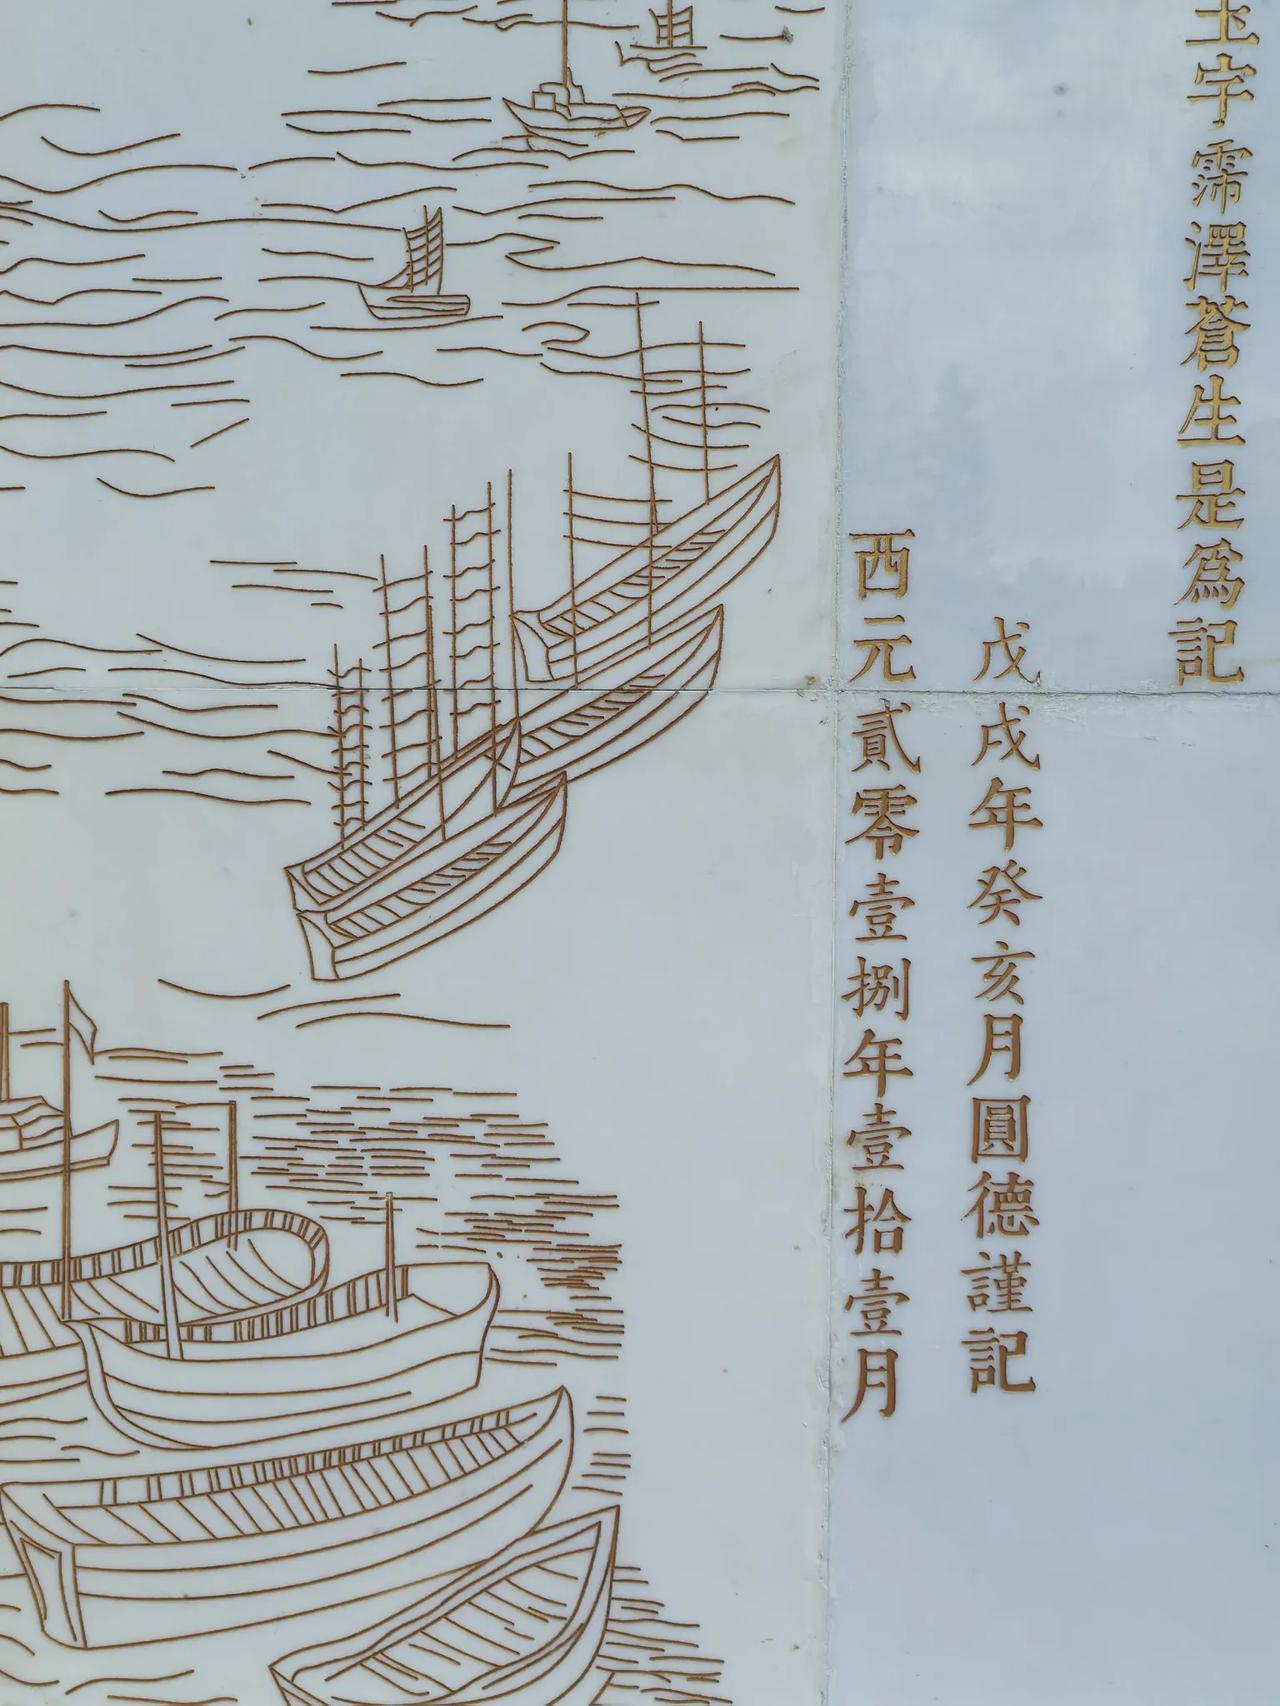 玉宇霈澤蒼生是爲記
戊戌年癸亥月圓德謹記
西元貳零壹捌年壹拾壹月